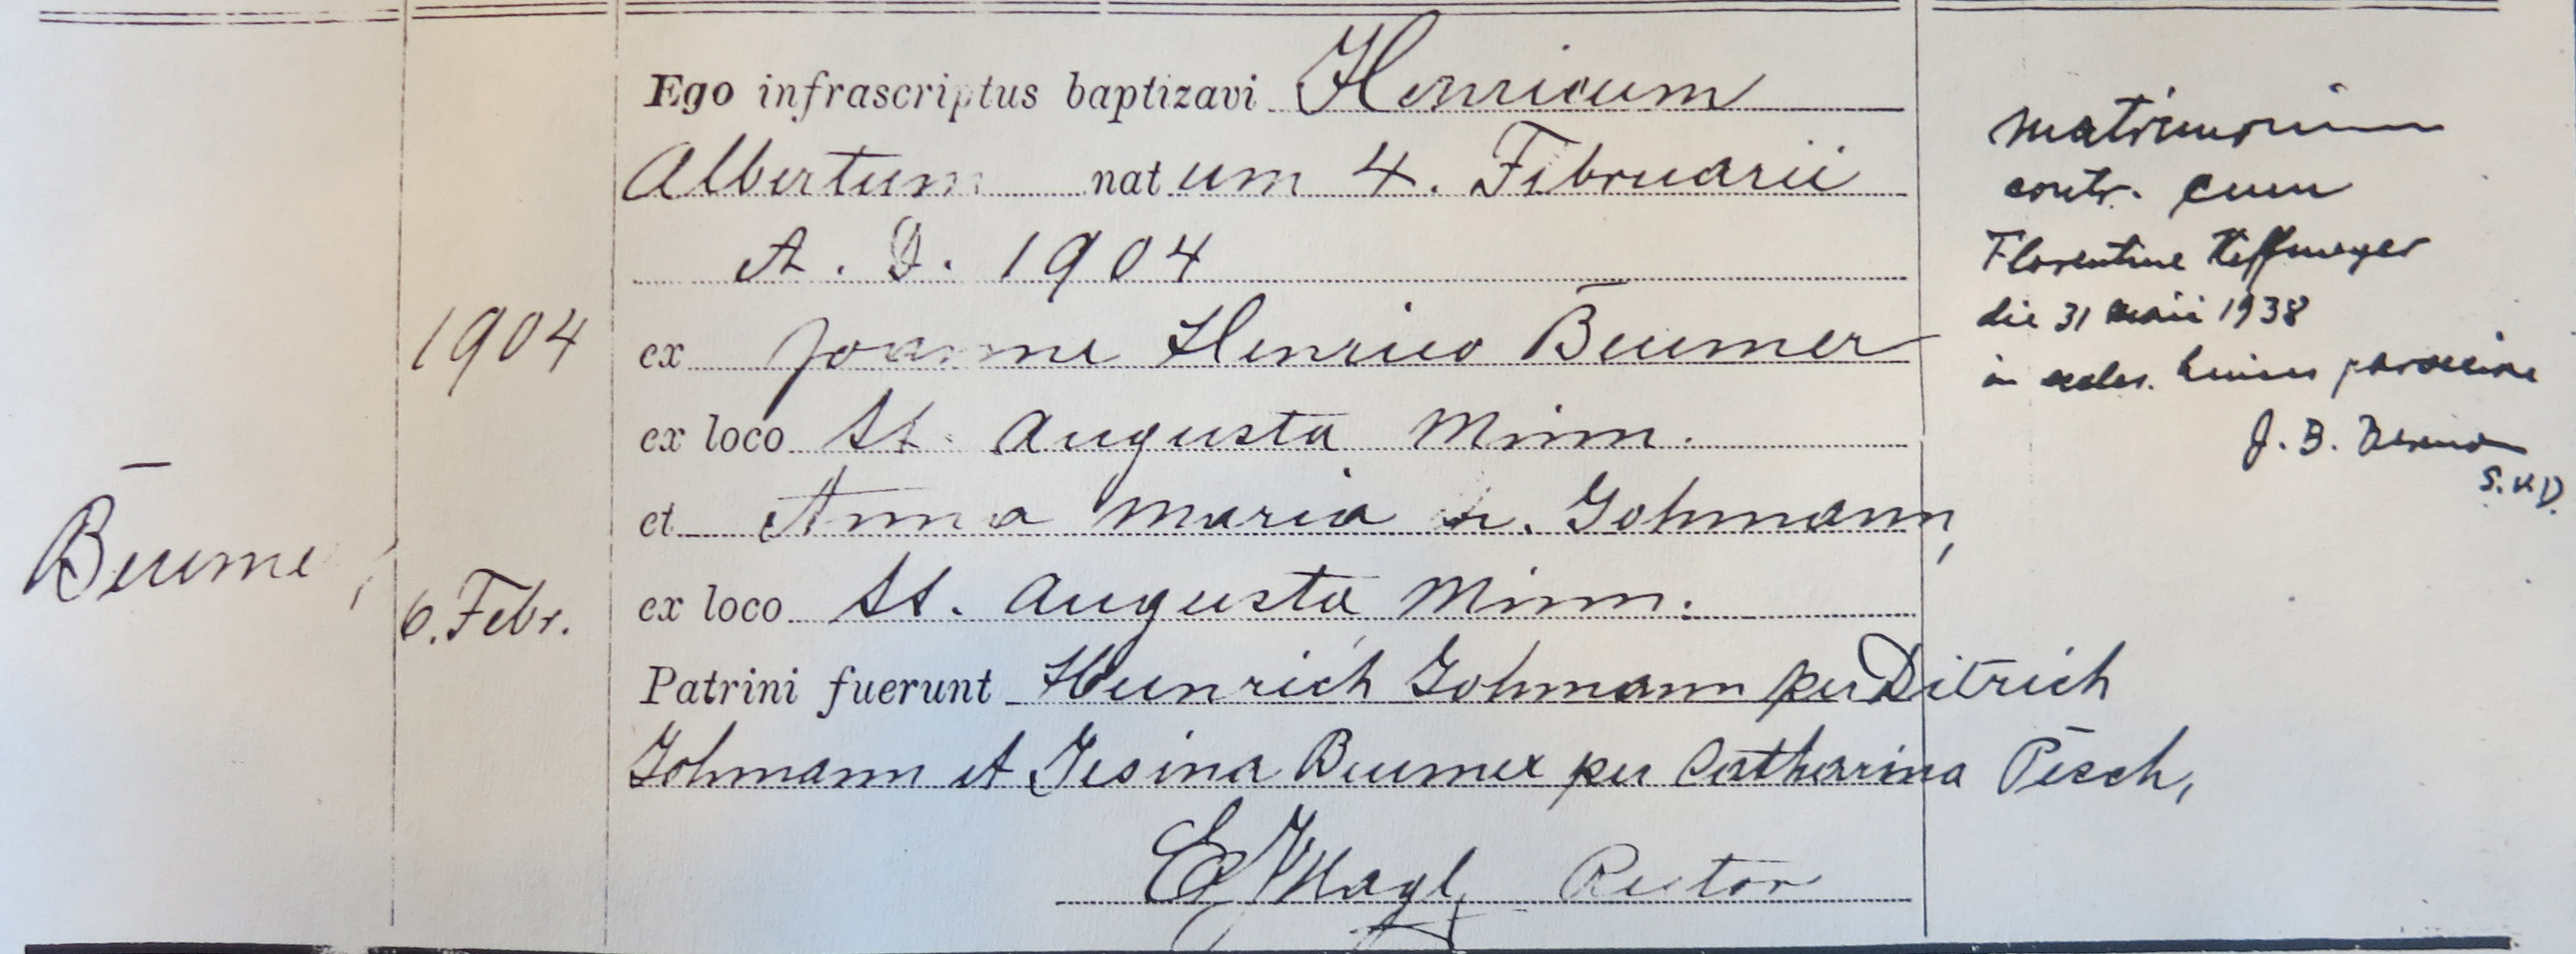 Ego infrascriptus baptizavi Henricum
Albertum natum 4. Februarii
A. D. 1904
ex Joanne Henrico Beumer
ex loco St. Augusta Minn.
et Anna Maria n. Gohmann,
ex loco St. Augusta Minn.
Patrini fuerunt Heinrich Gohmann per Ditrich
Gohmann et Gesina Beumer per Catharina Pesch,
Rector
1904
6. Febr.
Beumer
matrimonium
contr. cum
Florentine
die 31 maii 1938
in eccles. huius paroeciae
J. B.